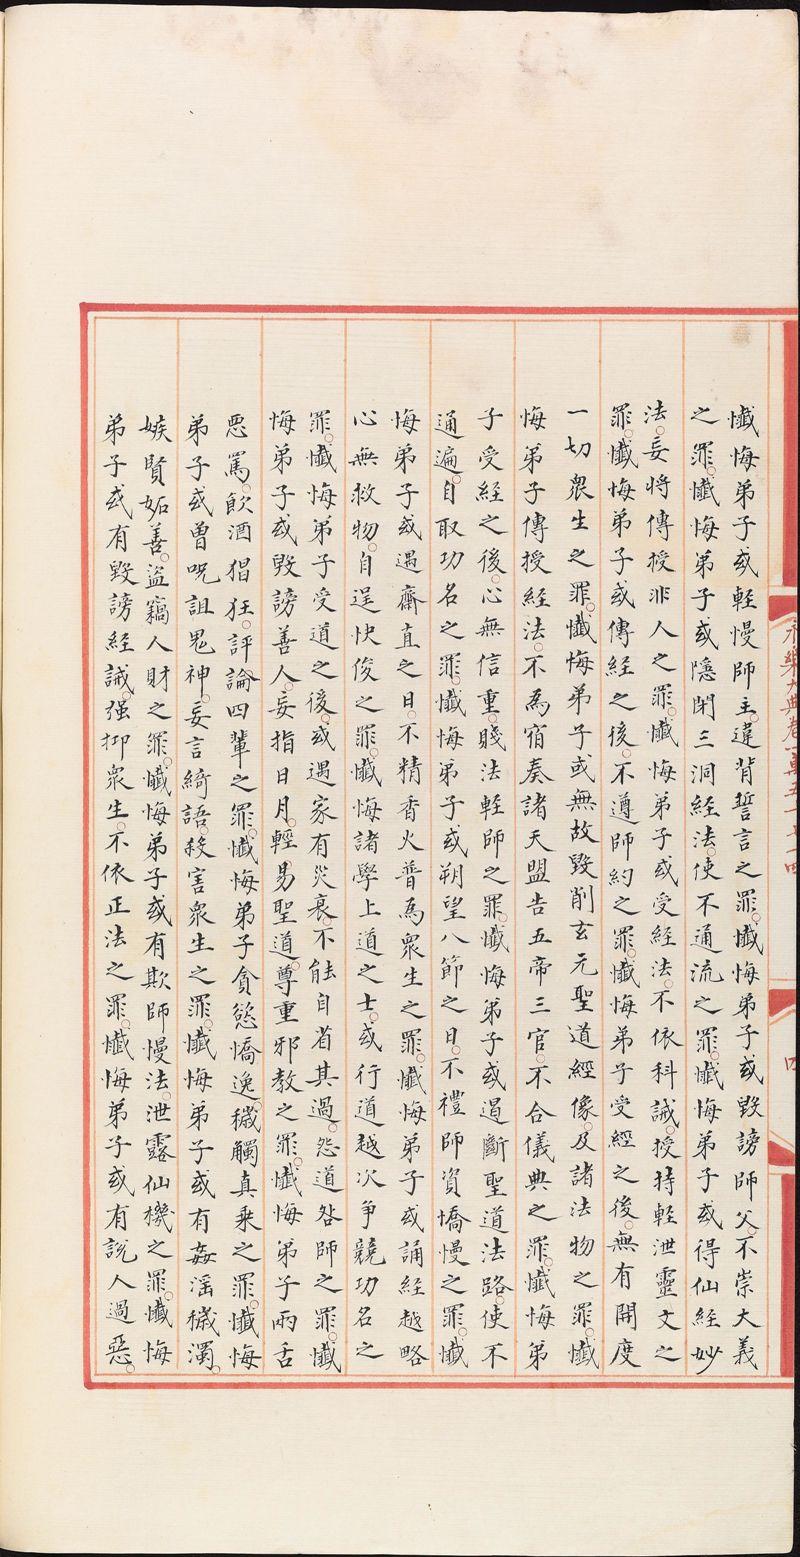 永樂大典卷一萬五千七十四
四
懺悔弟子或輕慢師主。違背誓言之罪。懺悔弟子或毀謗師父。不崇大義
之罪。懺悔弟子或隱閉三洞經法。使不通流之罪。懺悔弟子或得仙經妙
法。妄將傳授非人之罪。懺悔弟子或受經法。不依科誡。授持輕泄靈文之
罪。懺悔弟子或傳經之後。不遵師約之罪。懺悔弟子受經之後。無有開度
一切衆生之罪。懺悔弟子或無故毀削玄元聖道經像。及諸法物之罪。懺
悔弟子傳授經法。不為宿奏諸天盟告五帝三官。不合儀典之罪。懺悔弟
子受經之後。心無信重。賤法輕師之罪。懺悔弟子或遏斷聖道法路。使不
通遍。自取功名之罪。懺悔弟子或朔望八節之日。不禮師資憍慢之罪。懺
悔弟子或遇齋直之日。不精香火普為衆生之罪。懺悔弟子或誦經越略
心無救物。自逞快俊之罪。懺悔諸學上道之士。或行道越次爭競功名之
罪。懺悔弟子受道之後。或遇家有災衰。不能自省其過。怨道咎師之罪。懺
悔弟子或毀謗善人。妄指日月。輕易聖道。尊重邪教之罪。懺悔弟子兩舌
惡罵。飲酒猖狂。評論四輩之罪。懺悔弟子貪慾憍逸。穢觸真乗之罪。懺悔
弟子或曾呪詛鬼神。妄言綺語。殺害衆生之罪。懺悔弟子或有姦滛穢濁。
嫉賢妬善。盜竊人財之罪。懺悔弟子或有欺師慢法。泄露仙機之罪。懺悔
弟子或有毀謗經誡。强抑衆生。不依正法之罪。懺悔弟子或有說人過惡。